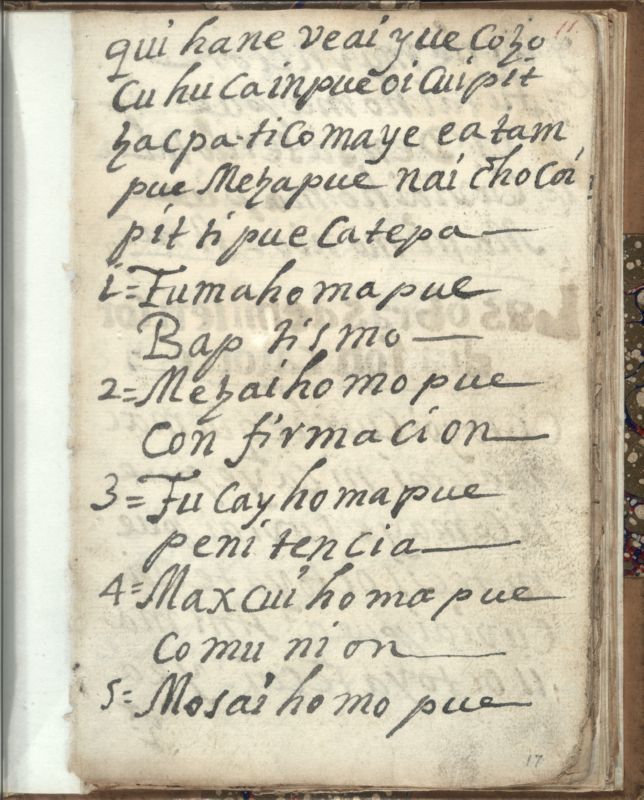 11
qui hane veai yue Cozo
Cu hu Ca inpue oi Cuipit
zacpa-ti Comaye eatam
pue Mezapue nai choCoi
pit ti pue Catepa—
1=Tumahomapue
Baptismo—
2=Mezaihomopue
Confirmacion—
3=TuCayhomapue
penitencia—
4=Maxcuihomapue
Comunion—
5=Mosaihomopue
17